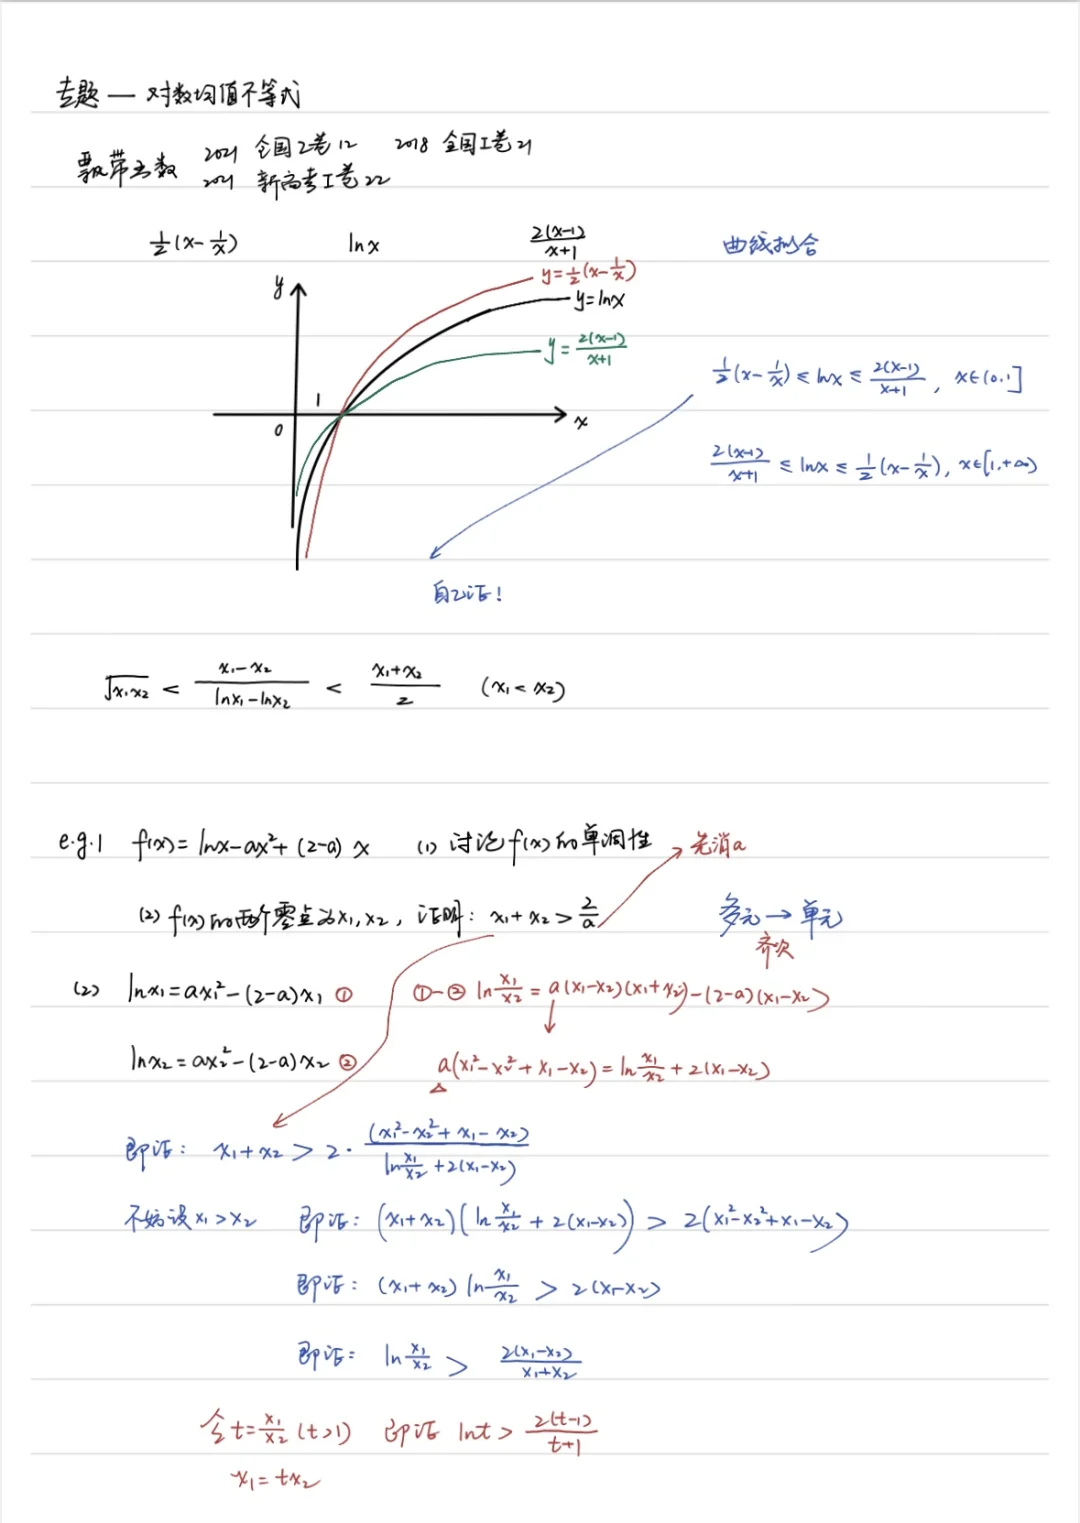 专题 — 对数均值不等式
飘带函数 2021 全国乙卷 12 2018 全国I卷 21
2021 新高考I卷 22
½(x-1/x) lnx 2(x-1)/(x+1) 曲线拟合
y y=½(x-1/x)
y=lnx
y=2(x-1)/(x+1)
½(x-1/x) ≤ lnx ≤ 2(x-1)/(x+1), x∈(0,1]
1
0 x
2(x-1)/(x+1) ≤ lnx ≤ ½(x-1/x), x∈[1,+∞)
自己证!
√x₁x₂ < (x₁-x₂)/(lnx₁-lnx₂) < (x₁+x₂)/2 (x₁<x₂)
e.g.1 f(x)=lnx-ax²+(2-a)x (1) 讨论f(x)的单调性 先消a
(2) f(x)的两个零点为x₁,x₂, 证明: x₁+x₂>2/a 多元→单元
齐次
(2) lnx₁=ax₁²-(2-a)x₁ ① ①-② ln x₁/x₂=a(x₁-x₂)(x₁+x₂)-(2-a)(x₁-x₂)
lnx₂=ax₂²-(2-a)x₂ ② a(x₁²-x₂²+x₁-x₂)=ln x₁/x₂+2(x₁-x₂)
△
即证: x₁+x₂ > 2·(x₁²-x₂²+x₁-x₂)/(ln x₁/x₂+2(x₁-x₂))
不妨设x₁>x₂ 即证: (x₁+x₂)(ln x₁/x₂+2(x₁-x₂)) > 2(x₁²-x₂²+x₁-x₂)
即证: (x₁+x₂) ln x₁/x₂ > 2(x₁-x₂)
即证: ln x₁/x₂ > 2(x₁-x₂)/(x₁+x₂)
令t=x₁/x₂ (t>1) 即证 lnt > 2(t-1)/(t+1)
x₁=tx₂